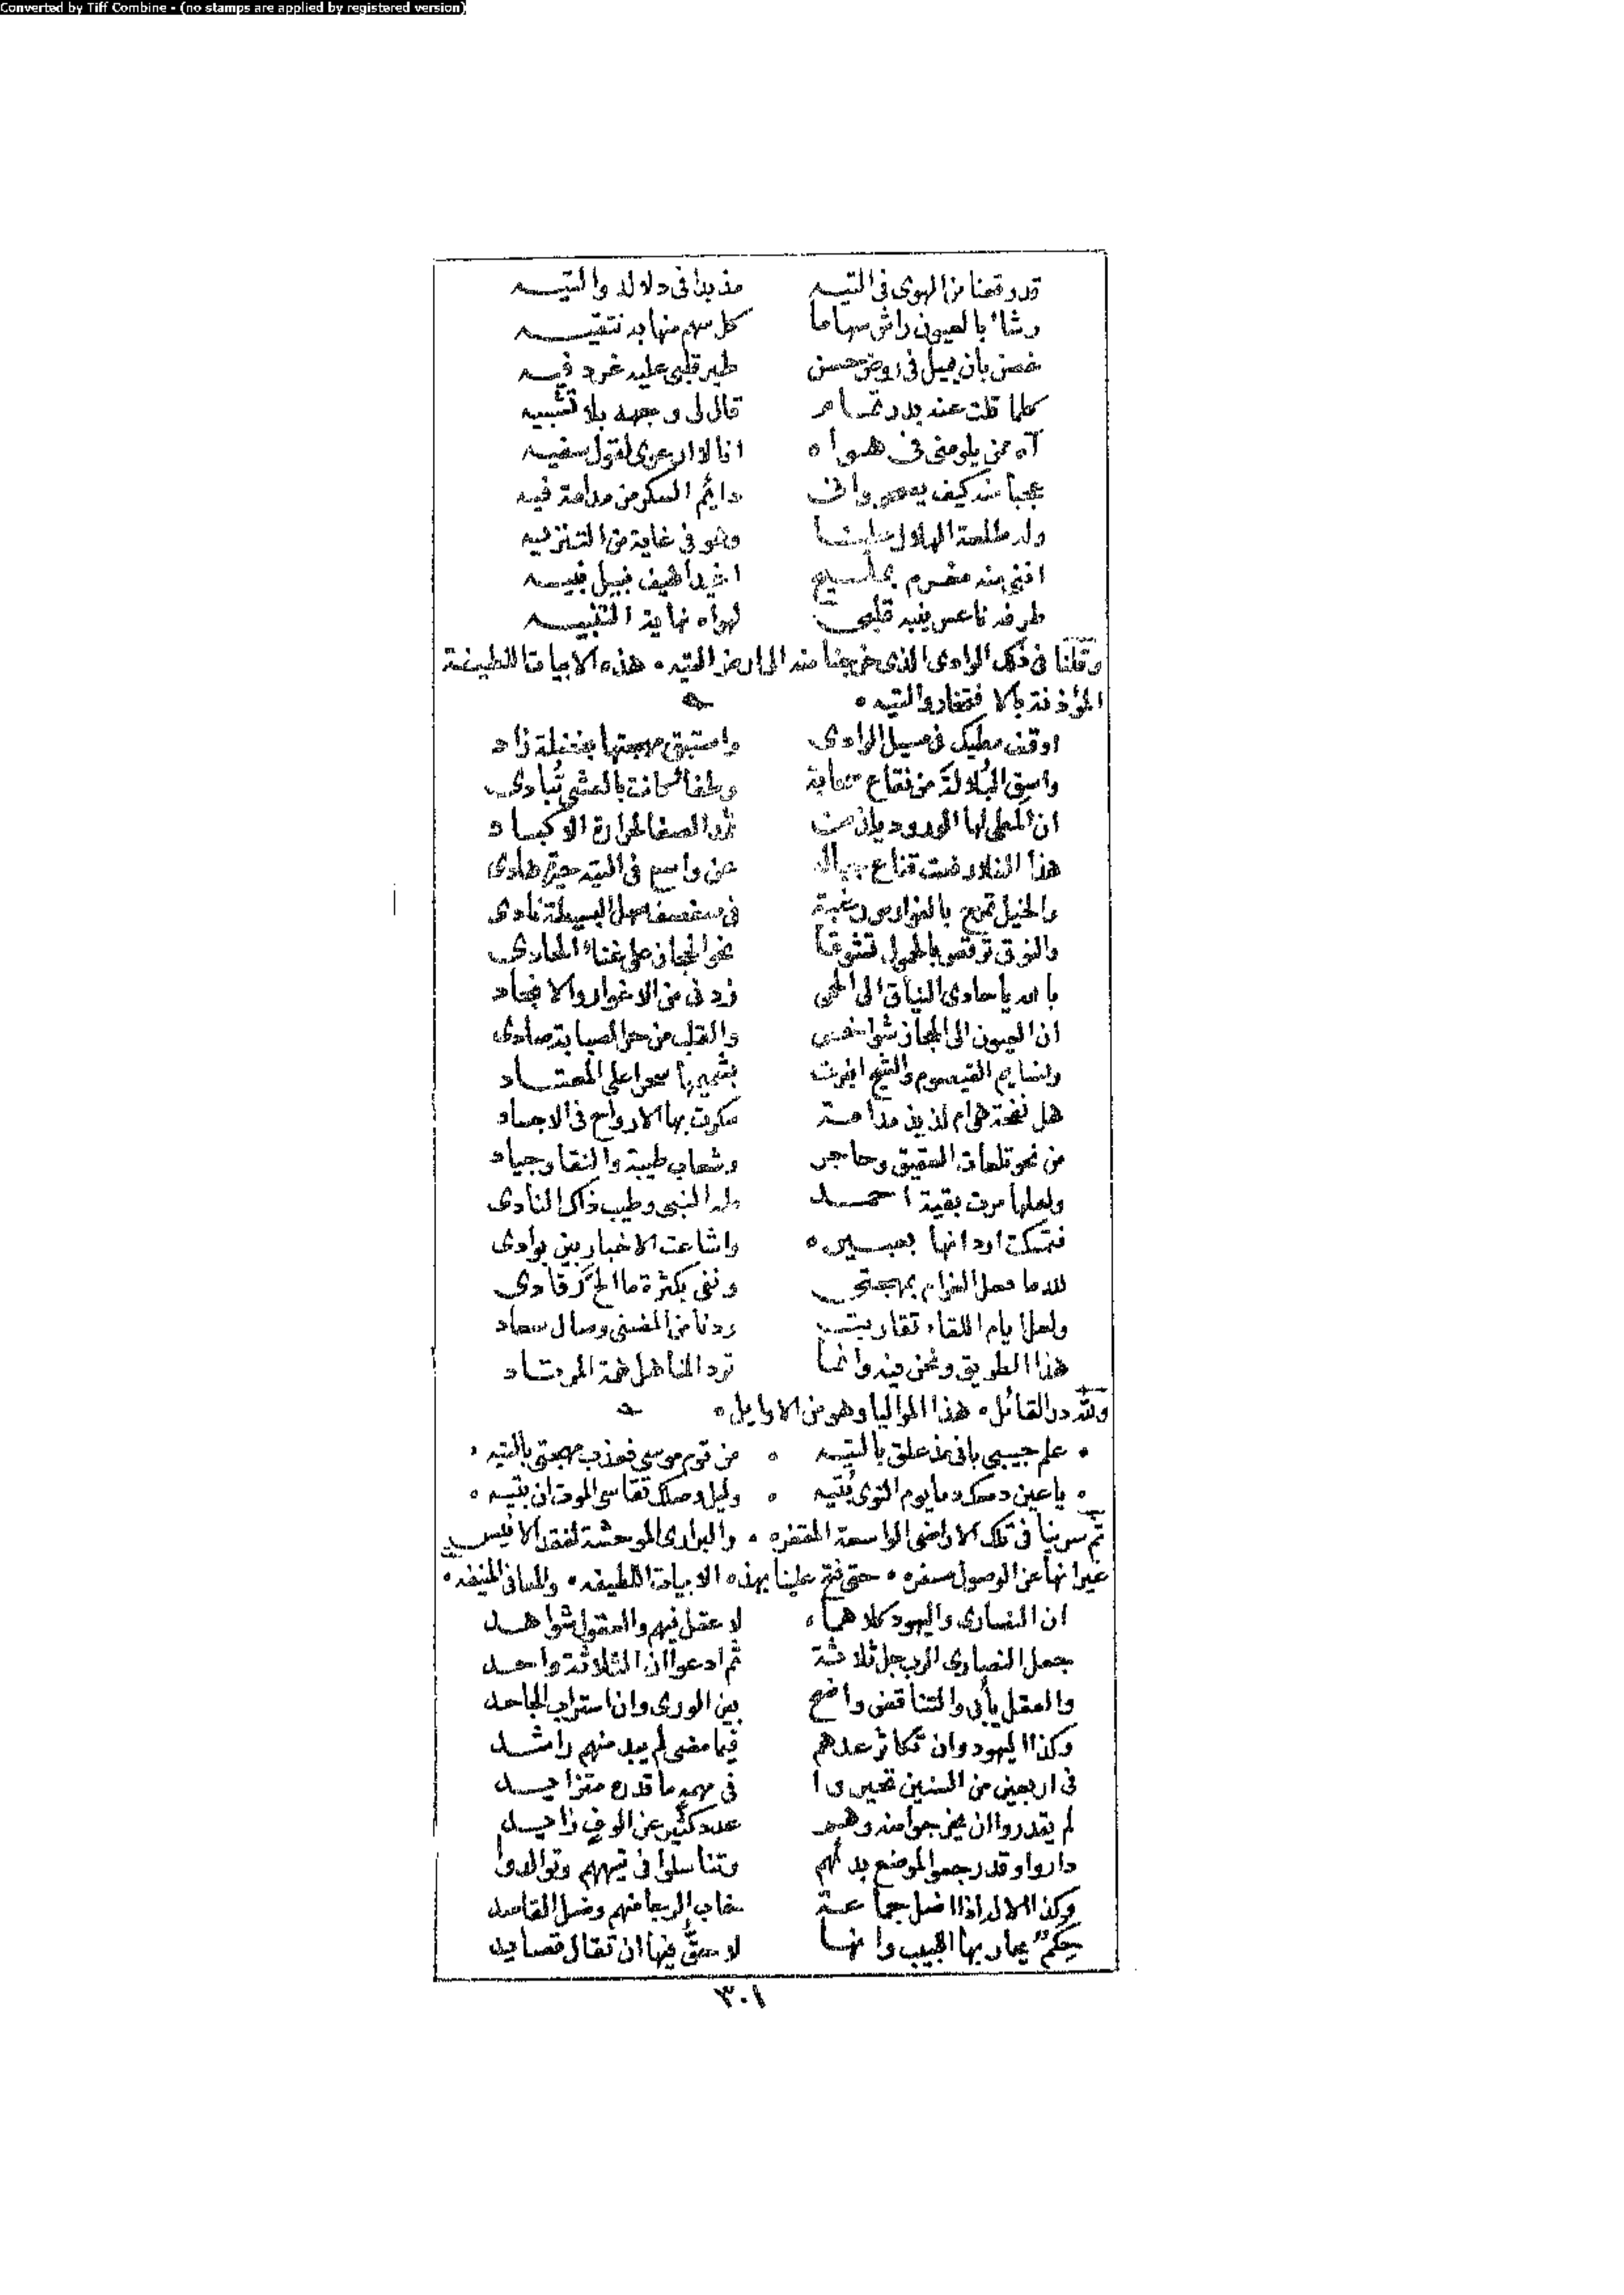 Converted by Tiff Combine - (no stamps are applied by registered version)
قد وقعنا من الهوى في التيه مذ بدا في دلاله والتيـــه
رشاء بالعيون راش سهاما كل سهم منها به نتقيـــه
غصن بان يميل في روض حسن طير قلبي عليه غرد فيـــه
كلما قلت عند بدر تمـــام قال لى وجهه بلا تشبيه
آه ممن يلومني في هـــواه انا لا ارعوى لقول سفيـــه
عجبا منه كيف يصحو واني دايم السكر من مدامة فيه
وله طلعة الهلال علينـــا وهو في غاية من التنزيه
مغرم بمليـــح اغيد اهيف نبيل نبيـــه
طرفه ناعس ينبه قلبي لهواه نهاية التنبيـــه
وقلنا في ذلك الوادى الذى خرجنا منه الى ارض التيه ، هذه الابيات اللطيفة
المؤذنة بالافتخار والتيه ،
اوقف مطيك في مسيل الوادى واستبق مهجتها بفضلة زاد
واسق البُلالة من نقاع سحابة وطفا كانت بالعشى تُبادى
ان المطى لها الورود
هذا الفلا رفعت قناع جباله عن واسع في التيه حير هادى
والخيل تمرح بالفوارس رغبة في صفصف سهل البسيطة نادى
والنوق ترقص بالحمول تشوقا نحو الحجاز على غناء الحادى
بالله يا حادى النياق الى الحمى زدنى من الاغوار والانجاد
ان العيون الى الحجاز شواخص والقلب من حر الصبابة صادى
ونسايم القيصوم والشيح انبرت سحرا على المعتـــاد
هل نفحة هى ام لذيذ مدامـــة سكرت بها الارواح في الاجساد
من نحو تلعات العقيق وحاجر وشعاب طيبة والنقا وجياد
ولعلها مرت بقبة احمـــد طه النبي وطيب ذاك النادى
فتمسكت اردانها بعبيـــره واشاعت الاخبار بين بوادى
لله ما فعل الغرام بمهجتي ونفى بكثرة ما الح رقادى
ولعل ايام اللقاء تقاربت ودنا من المضنى وصال سعاد
هذا الطريق ونحن فيه وانما ترد المناهل همة المرتـــاد
ولله در القائل ، هذا المواليا وهو من الاوايل ،
علم حبيبي باني مذ علق بالتيـــه ، من قوم موسى فعذب مهجتي بالتيه ،
يا عين دمعك دما يوم النوى بُتّيه ، وليل وصلك تقاسي الموت ان بتيـــه ،
ثم سرينا في تلك الاراضى الواسعة المقفره ، والبرارى الموحشة لفقد الانيس
غير انها عن الوصول مسفره ، حتى فتح علينا بهذه الابيات اللطيفه ، والمعاني المنيفه ،
ان النصارى واليهود كلاهما ، لا عقل فيهم والعقول شواهـــد
جعل النصارى الرب جل ثلاثـــة ثم ادعوا ان الثلاثة واحـــد
والعقل يأبى والتناقض واضح بين الورى وان استراب الجاحد
وكذا اليهود وان تكاثر عدهم فيما مضى لم يبد منهم راشـــد
في اربعين من السنين تحيروا في مهمهٍ ما قدره متزايـــد
لم يقدروا ان يخرجوا منه وهـــم عدد كثير عن الوف زايـــد
داروا وقد رجعوا لموضع بدئهم وتناسلوا في تيههم وتوالدوا
وكذا الاله اذا اضل جماعـــة خاب الرجا منهم وضل القاصد
حِكَمٌ يحار بها اللبيب وانهـــا لاحق فيها ان تقال قصايد
٣٠١